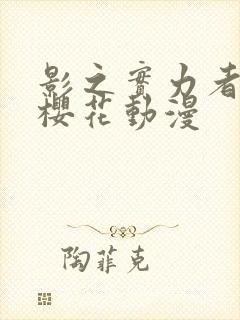 影之實力者
櫻花動漫
陶菲克